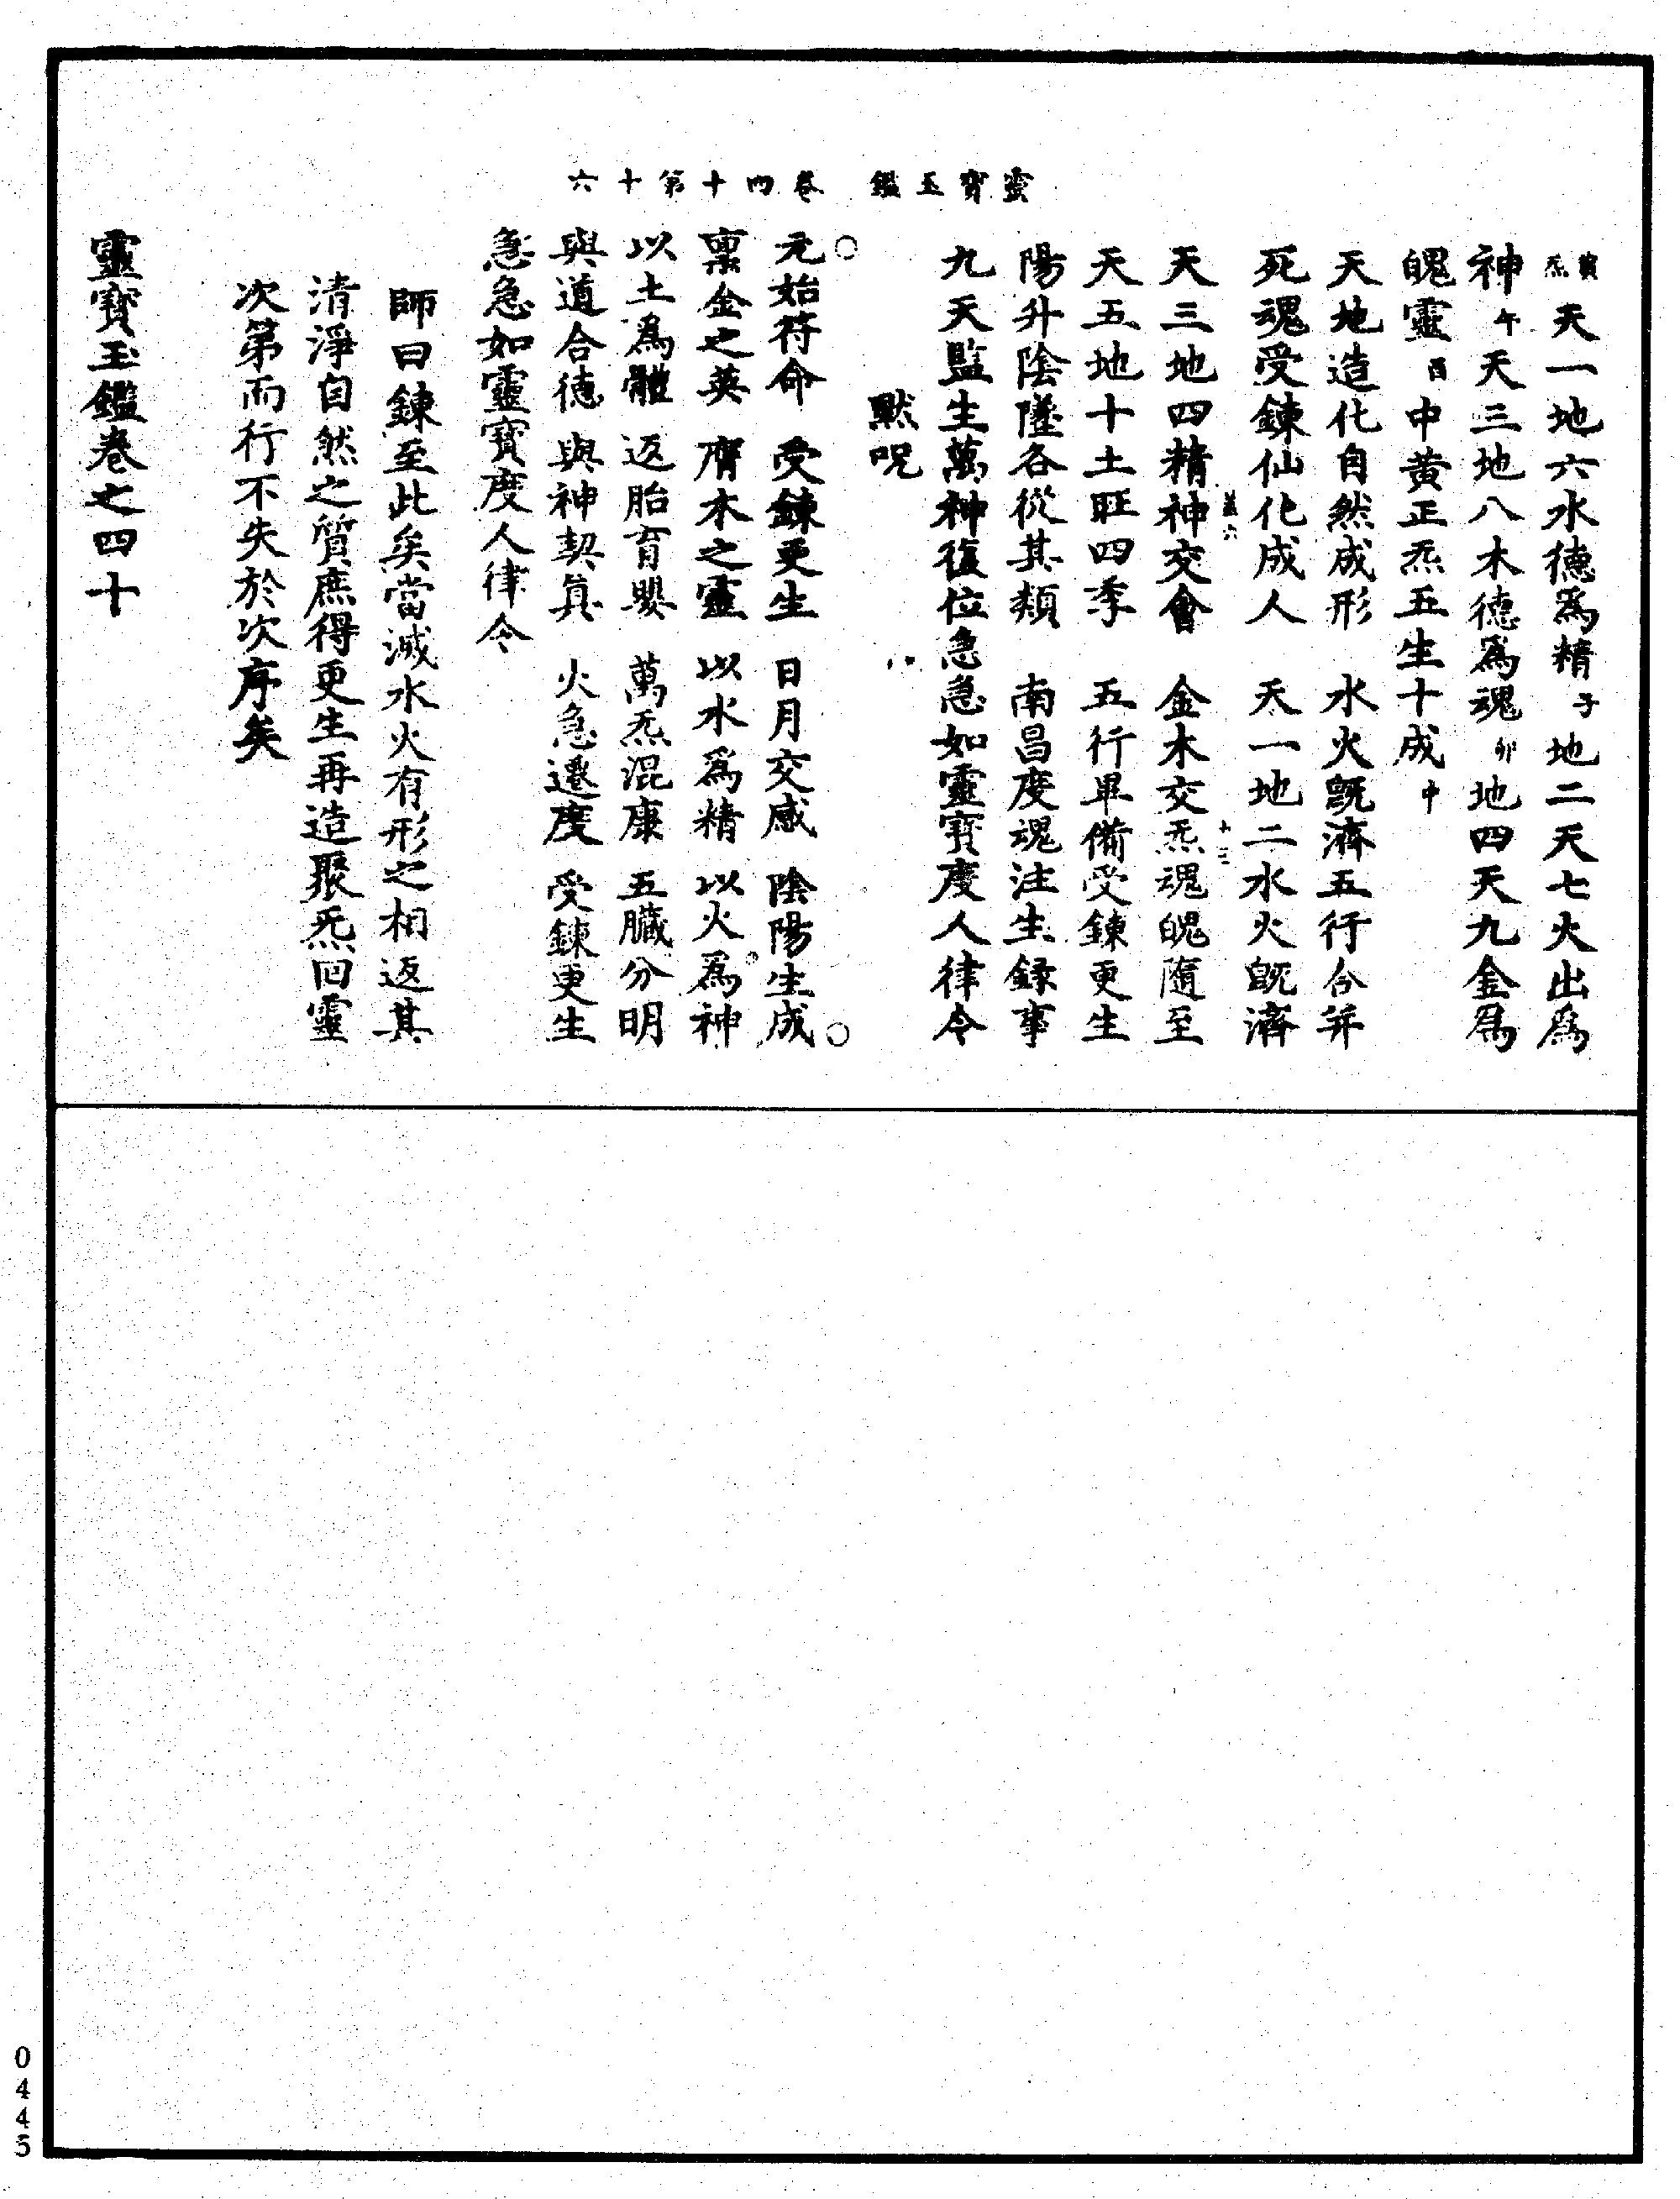 靈寶玉鑑　卷四十第十六
炁天一地六水德爲精子地二天七火出爲
神午天三地八木德爲魂卯地四天九金爲
魄靈酉中黃正炁五生十成中
天地造化自然成形　水火既濟五行合并
死魂受鍊仙化成人　天一地二水火既濟
天三地四精神交會　金木交炁魂魄隨至
天五地十土旺四季　五行畢備受鍊更生
陽升陰墜各從其類　南昌度魂注生録事
九天監生萬神復位急急如靈寶度人律令
默呪
元始符命　受鍊更生　日月交感　陰陽生成
稟金之英　膺木之靈　以水爲精　以火爲神
以土爲體　返胎育嬰　萬炁混康　五臟分明
與道合德　與神契真　火急遷度　受鍊更生
急急如靈寶度人律令
師曰鍊至此矣當滅水火有形之相返其
清淨自然之質庶得更生再造聚炁回靈
次第而行不失於次序矣
靈寶玉鑑卷之四十
0445